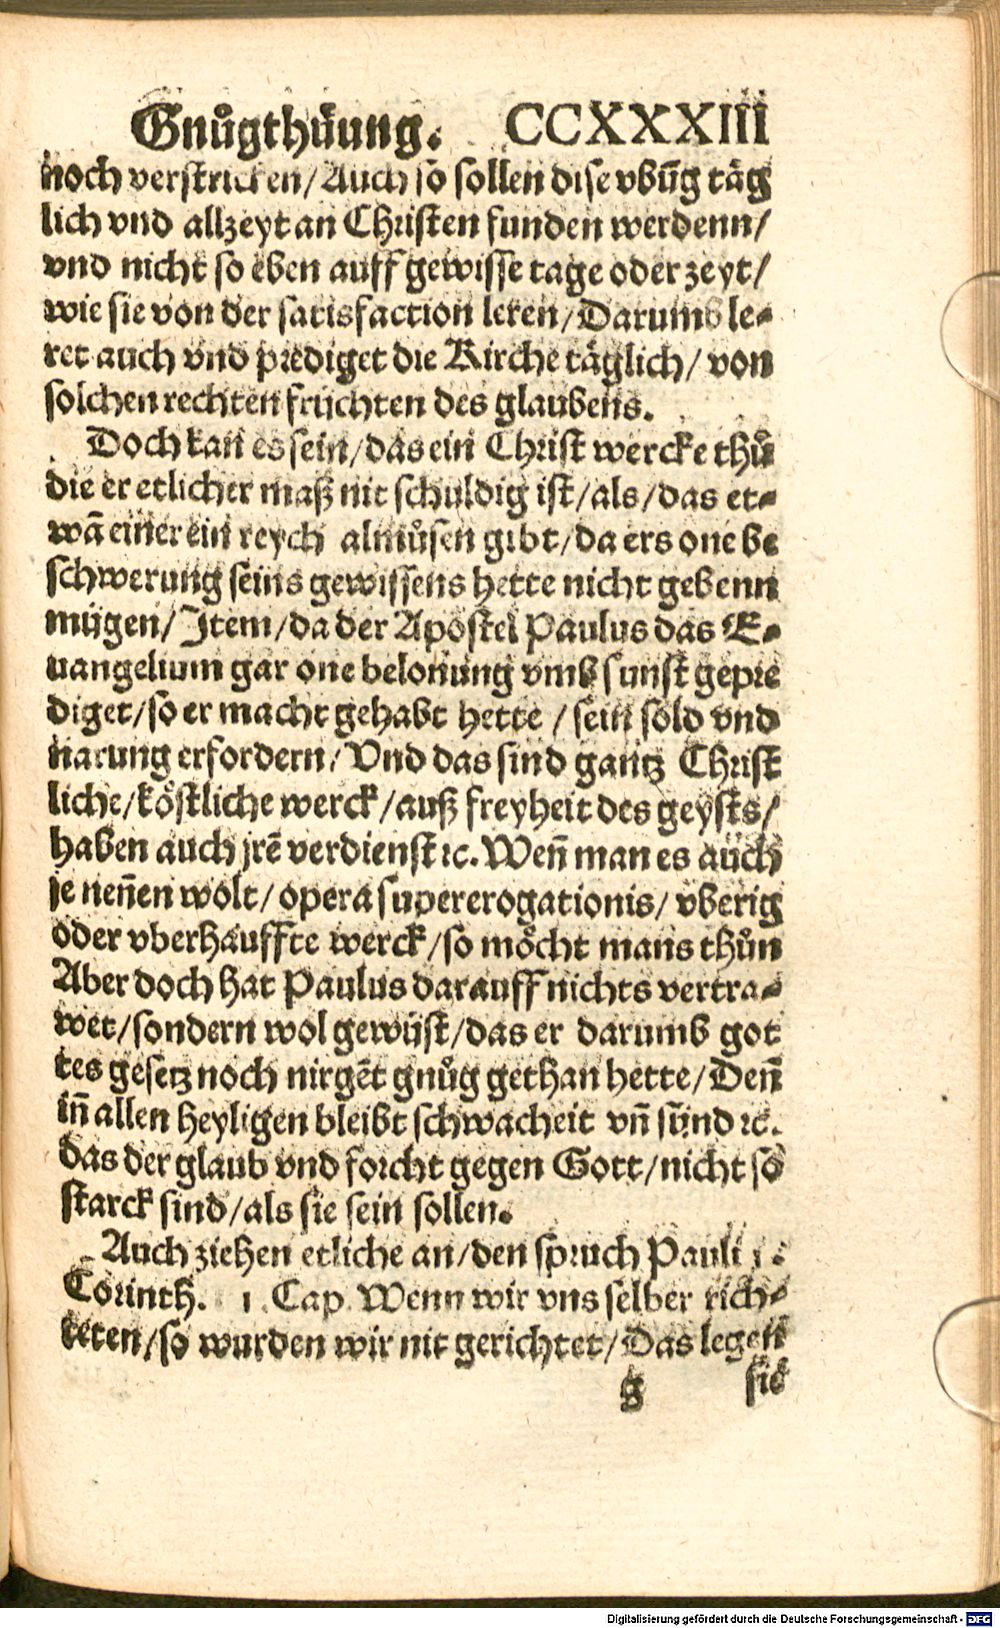 Gnuͦgthuͤung. CCXXXIII
noch verstricken/ Auch so sollen dise vbūg täg
lich vnd allzeyt an Christen funden werdenn/
vnd nicht so eben auff gewisse tage oder zeyt/
wie sie von der satisfaction leren/ Darumb le-
ret auch vnd prediget die Kirche täglich/ von
solchen rechten früchten des glaubens.
Doch kan es sein/ das ein Christ wercke thuͦ
die er etlicher maß nit schuldig ist/ als/ das et-
wā einer ein reych almuͦsen gibt/ da ers one be
schwerung seins gewissens hette nicht gebenn
mügen/ Item/ da der Apostel Paulus das E-
uangelium gar one belonung vmb sunst gepre
diget/ so er macht gehabt hette/ sein sold vnd
narung erfordern/ Vnd das sind gantz Christ
liche/ köstliche werck/ auß freyheit des geysts/
haben auch jrē verdienst ꝛc. Wen̄ man es auch
je nen̄en wolt/ opera supererogationis/ vberig
oder vberhauffte werck/ so möcht mans thuͦn
Aber doch hat Paulus darauff nichts vertra-
wet/ sondern wol gewüst/ das er darumb got
tes gesetz noch nirgēt gnuͦg gethan hette/ Den̄
in̄ allen heyligen bleibt schwacheit vn̄ sünd ꝛc.
das der glaub vnd forcht gegen Gott/ nicht so
starck sind/ als sie sein sollen.
Auch ziehen etliche an/ den spruch Pauli 1.
Corinth. 1. Cap. Wenn wir vns selber rich-
teten/ so wurden wir nit gerichtet/ Das legen
g sie
Digitalisierung gefördert durch die Deutsche Forschungsgemeinschaft - DFG